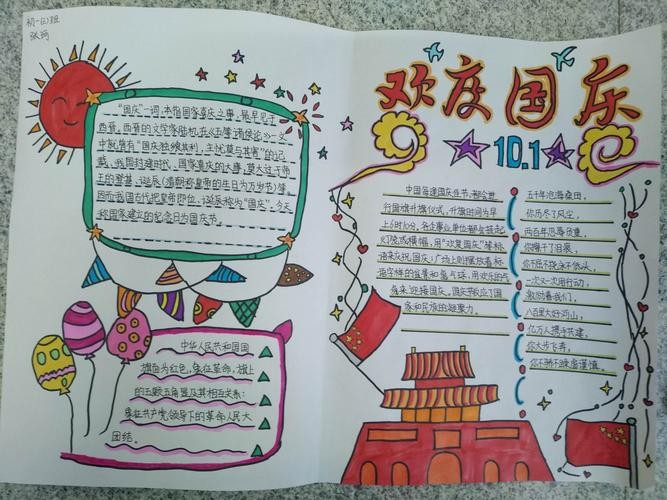 初一(2)班
张巧
欢度国庆
10.1
"国庆"一词,本指国家喜庆之事,最早见于
西晋。西晋的文学家陆机在《五等诸侯论》一文
中就曾有"国庆独飨其利,主忧莫与其害"的记
载,我国封建时代、国家喜庆的大事,莫大过于帝
王的登基、诞辰(清朝称皇帝的生日为万岁节)等。
因而我国古代把皇帝即位、诞辰称为"国庆"。今天
称国家建立的纪念日为国庆节。
中华人民共和国国
旗面为红色,象征革命,旗上
的五颗五角星及其相互关系
象征共产党领导下的革命人民大
团结。
中国每逢国庆佳节,都会举
行国旗升旗仪式,升旗时间为早
上6时10分,各企事业单位都会挂起
灯笼或横幅,用"欢度国庆"等标
语来庆祝国庆,广场上则摆放着标
语字样的盆景和氢气球,用欢乐的气
氛来迎接国庆。国庆节反应了国
家和民族的凝聚力。
五千年沧海桑田,
你历尽了风尘,
两百年忍辱负重,
你撑下了日来,
你不屈不挠永不低头,
一次又一次用行动,
激励着我们,
八百里大好河山,
亿万人携手共建,
你大步飞奔,
你不骄不躁虚谨慎。